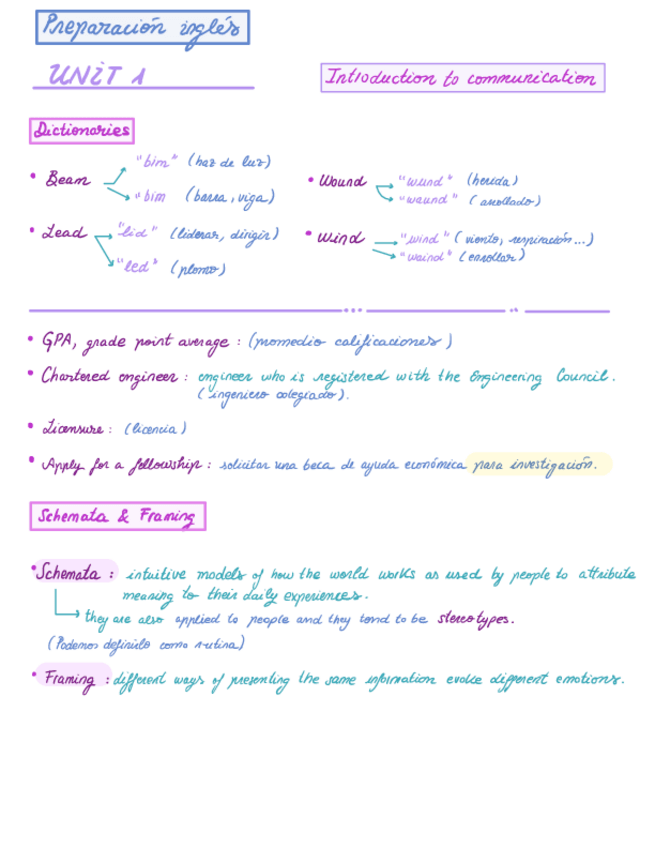 Preparación inglés
UNIT 1
Introduction to communication
Dictionaries
• Beam "bim" (haz de luz)
"bim (barra, viga)
• Lead "lid" (liderar, dirigir)
"led" (plomo)
• Wound "wund" (herida)
"waund" (enrollado)
• Wind "wind" (viento, respiración...)
"waind" (enrollar)
• GPA, grade point average : (promedio calificaciones)
• Chartered engineer : engineer who is registered with the Engineering Council.
(ingeniero colegiado).
• Licensure : (licencia)
• Apply for a fellowship : solicitar una beca de ayuda económica para investigación.
Schemata & Framing
• Schemata : intuitive models of how the world works as used by people to attribute
meaning to their daily experiences.
they are also applied to people and they tend to be stereotypes.
(Podemos definirlo como rutina)
• Framing : different ways of presenting the same information evoke different emotions.